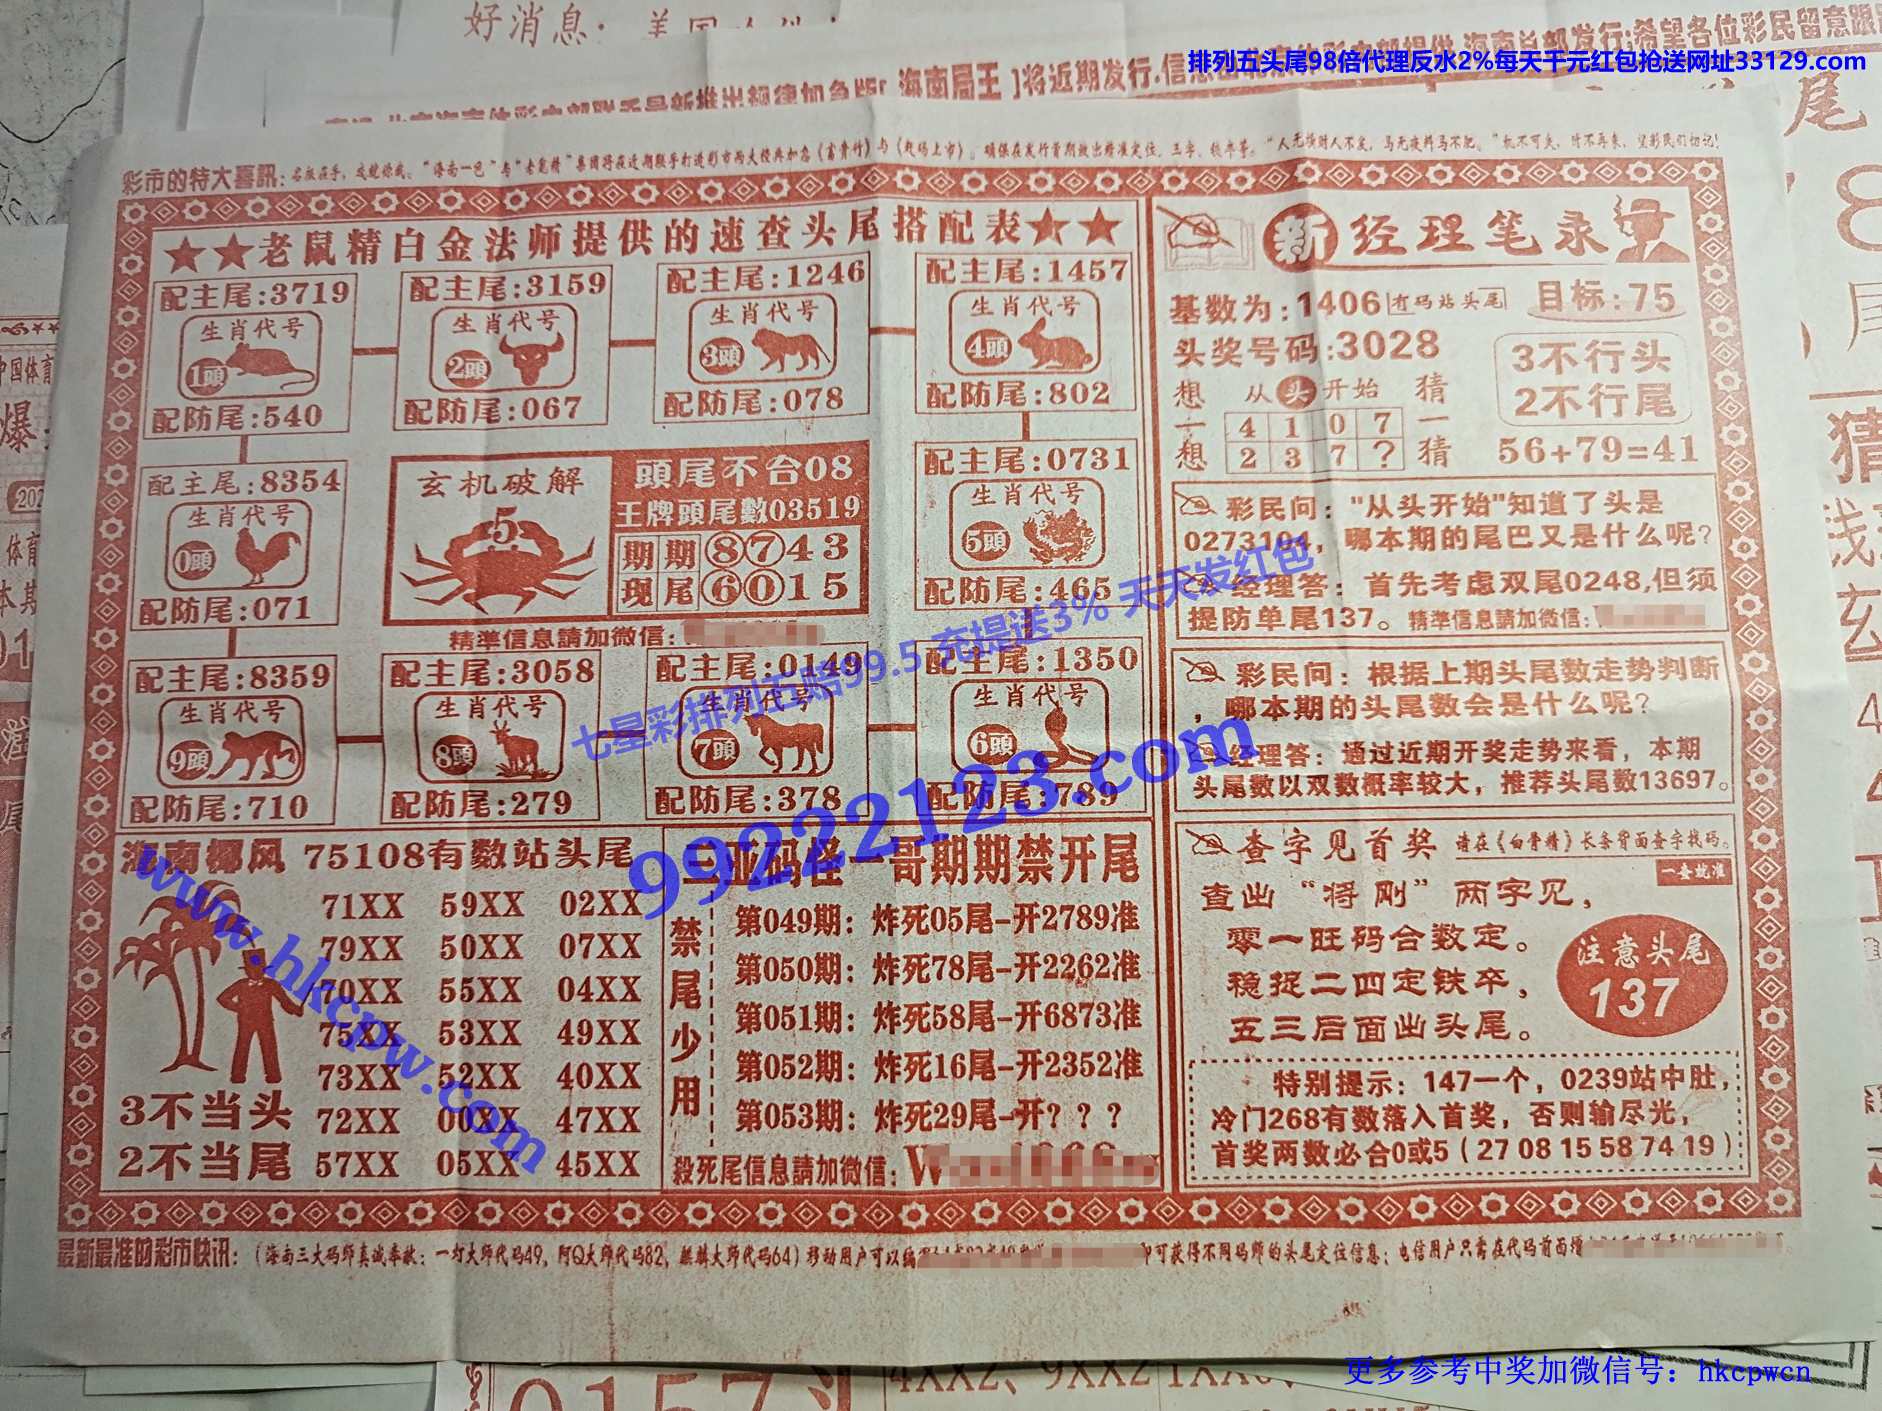 好消息：
排列五头尾98倍代理反水2%每天千元红包抢送网址33129.com
【海南局王】将近期发行.信息
海南总部发行;希望各位彩民留意跟
彩市的特大喜訊：
"人无横财人不发，马无夜料马不肥。"机不可失，时不再来，望彩民们切记!
★★老鼠精白金法师提供的速查头尾搭配表★★
配主尾:3719
生肖代号
1頭
配防尾:540
配主尾:3159
生肖代号
2頭
配防尾:067
配主尾:1246
生肖代号
3頭
配防尾:078
配主尾:1457
生肖代号
4頭
配防尾:802
配主尾:8354
生肖代号
0頭
配防尾:071
玄机破解
5
頭尾不合08
王牌頭尾數03519
期期⑧⑦43
现尾⑥⓪15
精準信息請加微信:
配主尾:0731
生肖代号
5頭
配防尾:465
配主尾:8359
生肖代号
9頭
配防尾:710
配主尾:3058
生肖代号
8頭
配防尾:279
配主尾:0149
生肖代号
7頭
配防尾:378
配主尾:1350
生肖代号
6頭
配防尾:789
七星彩排列五赔99.5 充提送3% 天天发红包
99222123.com
www.hkcpw.com
海南椰风 75108有数站头尾
71XX 59XX 02XX
79XX 50XX 07XX
70XX 55XX 04XX
75XX 53XX 49XX
73XX 52XX 40XX
72XX 00XX 47XX
57XX 05XX 45XX
3不当头
2不当尾
三亚码怪一哥期期禁开尾
禁尾少用
第049期：炸死05尾-开2789准
第050期：炸死78尾-开2262准
第051期：炸死58尾-开6873准
第052期：炸死16尾-开2352准
第053期：炸死29尾-开？？？
殺死尾信息請加微信：W
新经理笔录
基数为:1406 有码站头尾 目标:75
头奖号码:3028
3不行头
2不行尾
想一想
从头开始
猜一猜
4 1 0 7
2 3 7 ?
56+79=41
彩民问："从头开始"知道了头是
0273104，哪本期的尾巴又是什么呢?
经理答：首先考虑双尾0248,但须
提防单尾137。精準信息請加微信:
彩民问：根据上期头尾数走势判断
，哪本期的头尾数会是什么呢?
经理答：通过近期开奖走势来看，本期
头尾数以双数概率较大，推荐头尾数13697。
查字见首奖 请在《白骨精》长条背面查字找码。
一查就准
查出"将刚"两字见，
零一旺码合数定。
稳捉二四定铁卒，
五三后面出头尾。
注意头尾
137
特别提示：147一个，0239站中肚，
冷门268有数落入首奖，否则输尽光，
首奖两数必合0或5（27 08 15 58 74 19）
最新最准的彩市快讯：（海南三大码师真诚奉献：一灯大师代码49，阿Q大师代码82，麒麟大师代码64）移动用户可以编
即可获得不同码师的头尾定位信息；电信用户只需在代码前面增
更多参考中奖加微信号：hkcpwcn